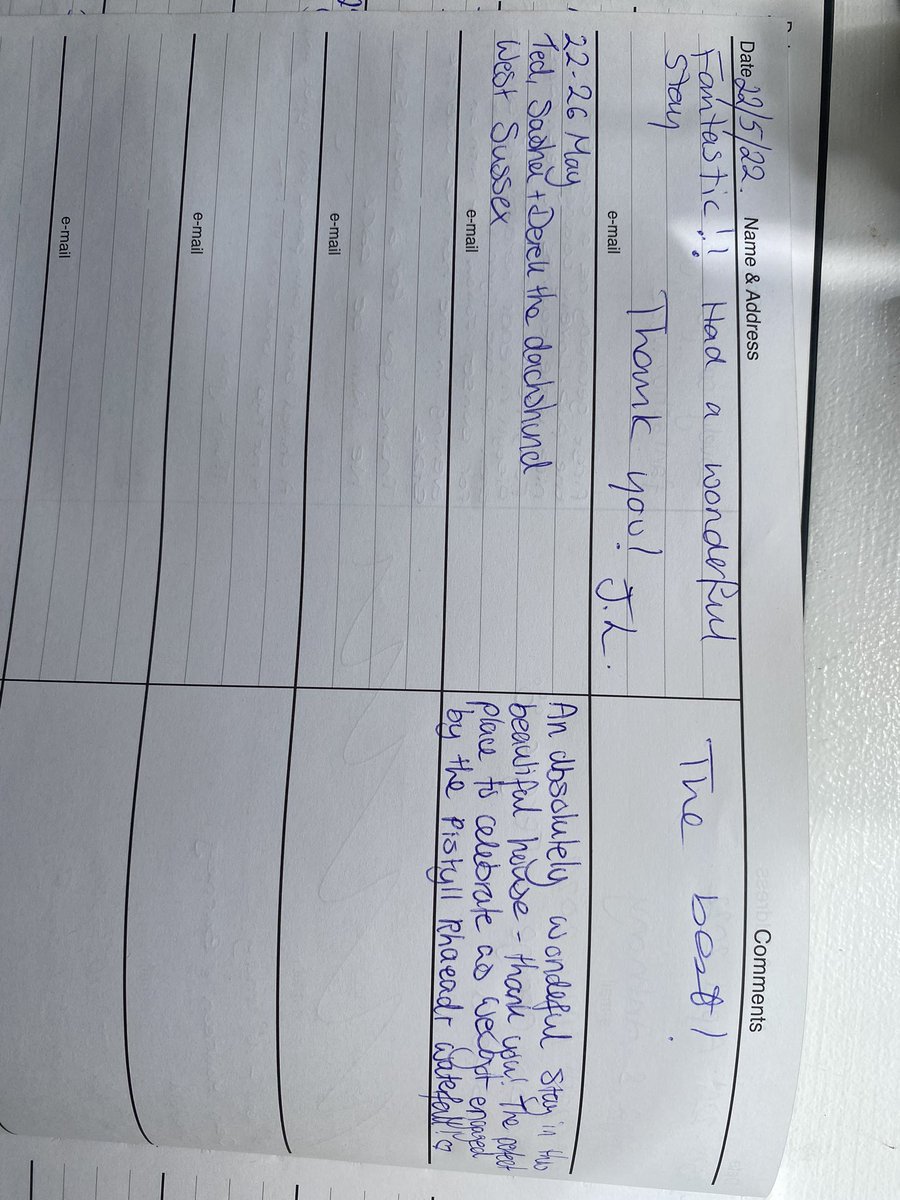 Date 22/5/22. Name & Address Comments
Fantastic!! Had a wonderful The best!
Stay
Thank you! J.L.
e-mail
22-26 May
Ted, Sachel + Derek the dachshund
West Sussex
e-mail
An absolutely wonderful stay in this
beautiful house - thank you! The perfect
place to celebrate as we got engaged
by the Pistyll Rhaeadr waterfall! ♡
e-mail
e-mail
e-mail